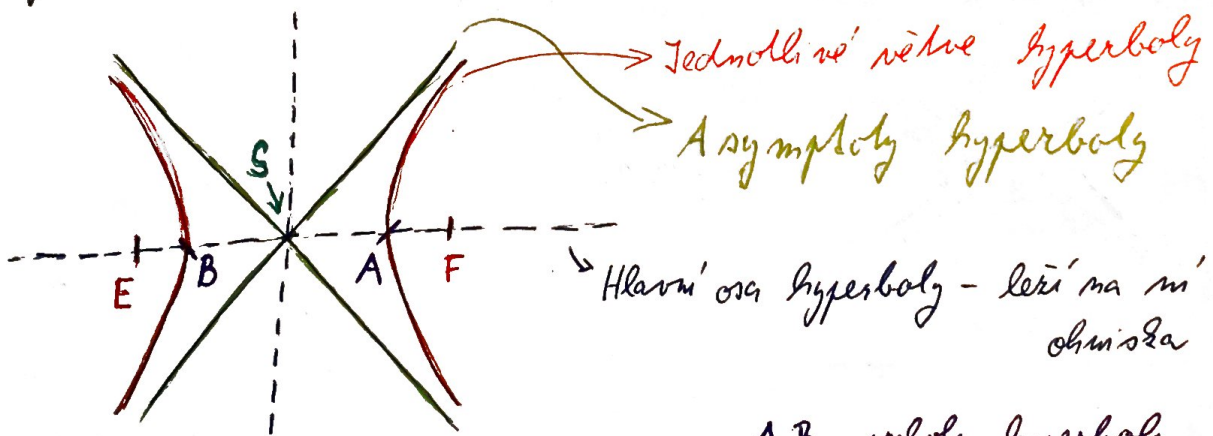 Jednotlivé větve hyperboly
Asymptoty hyperboly
S
E B A F
Hlavní osa hyperboly - leží na ní
ohniska
A,B